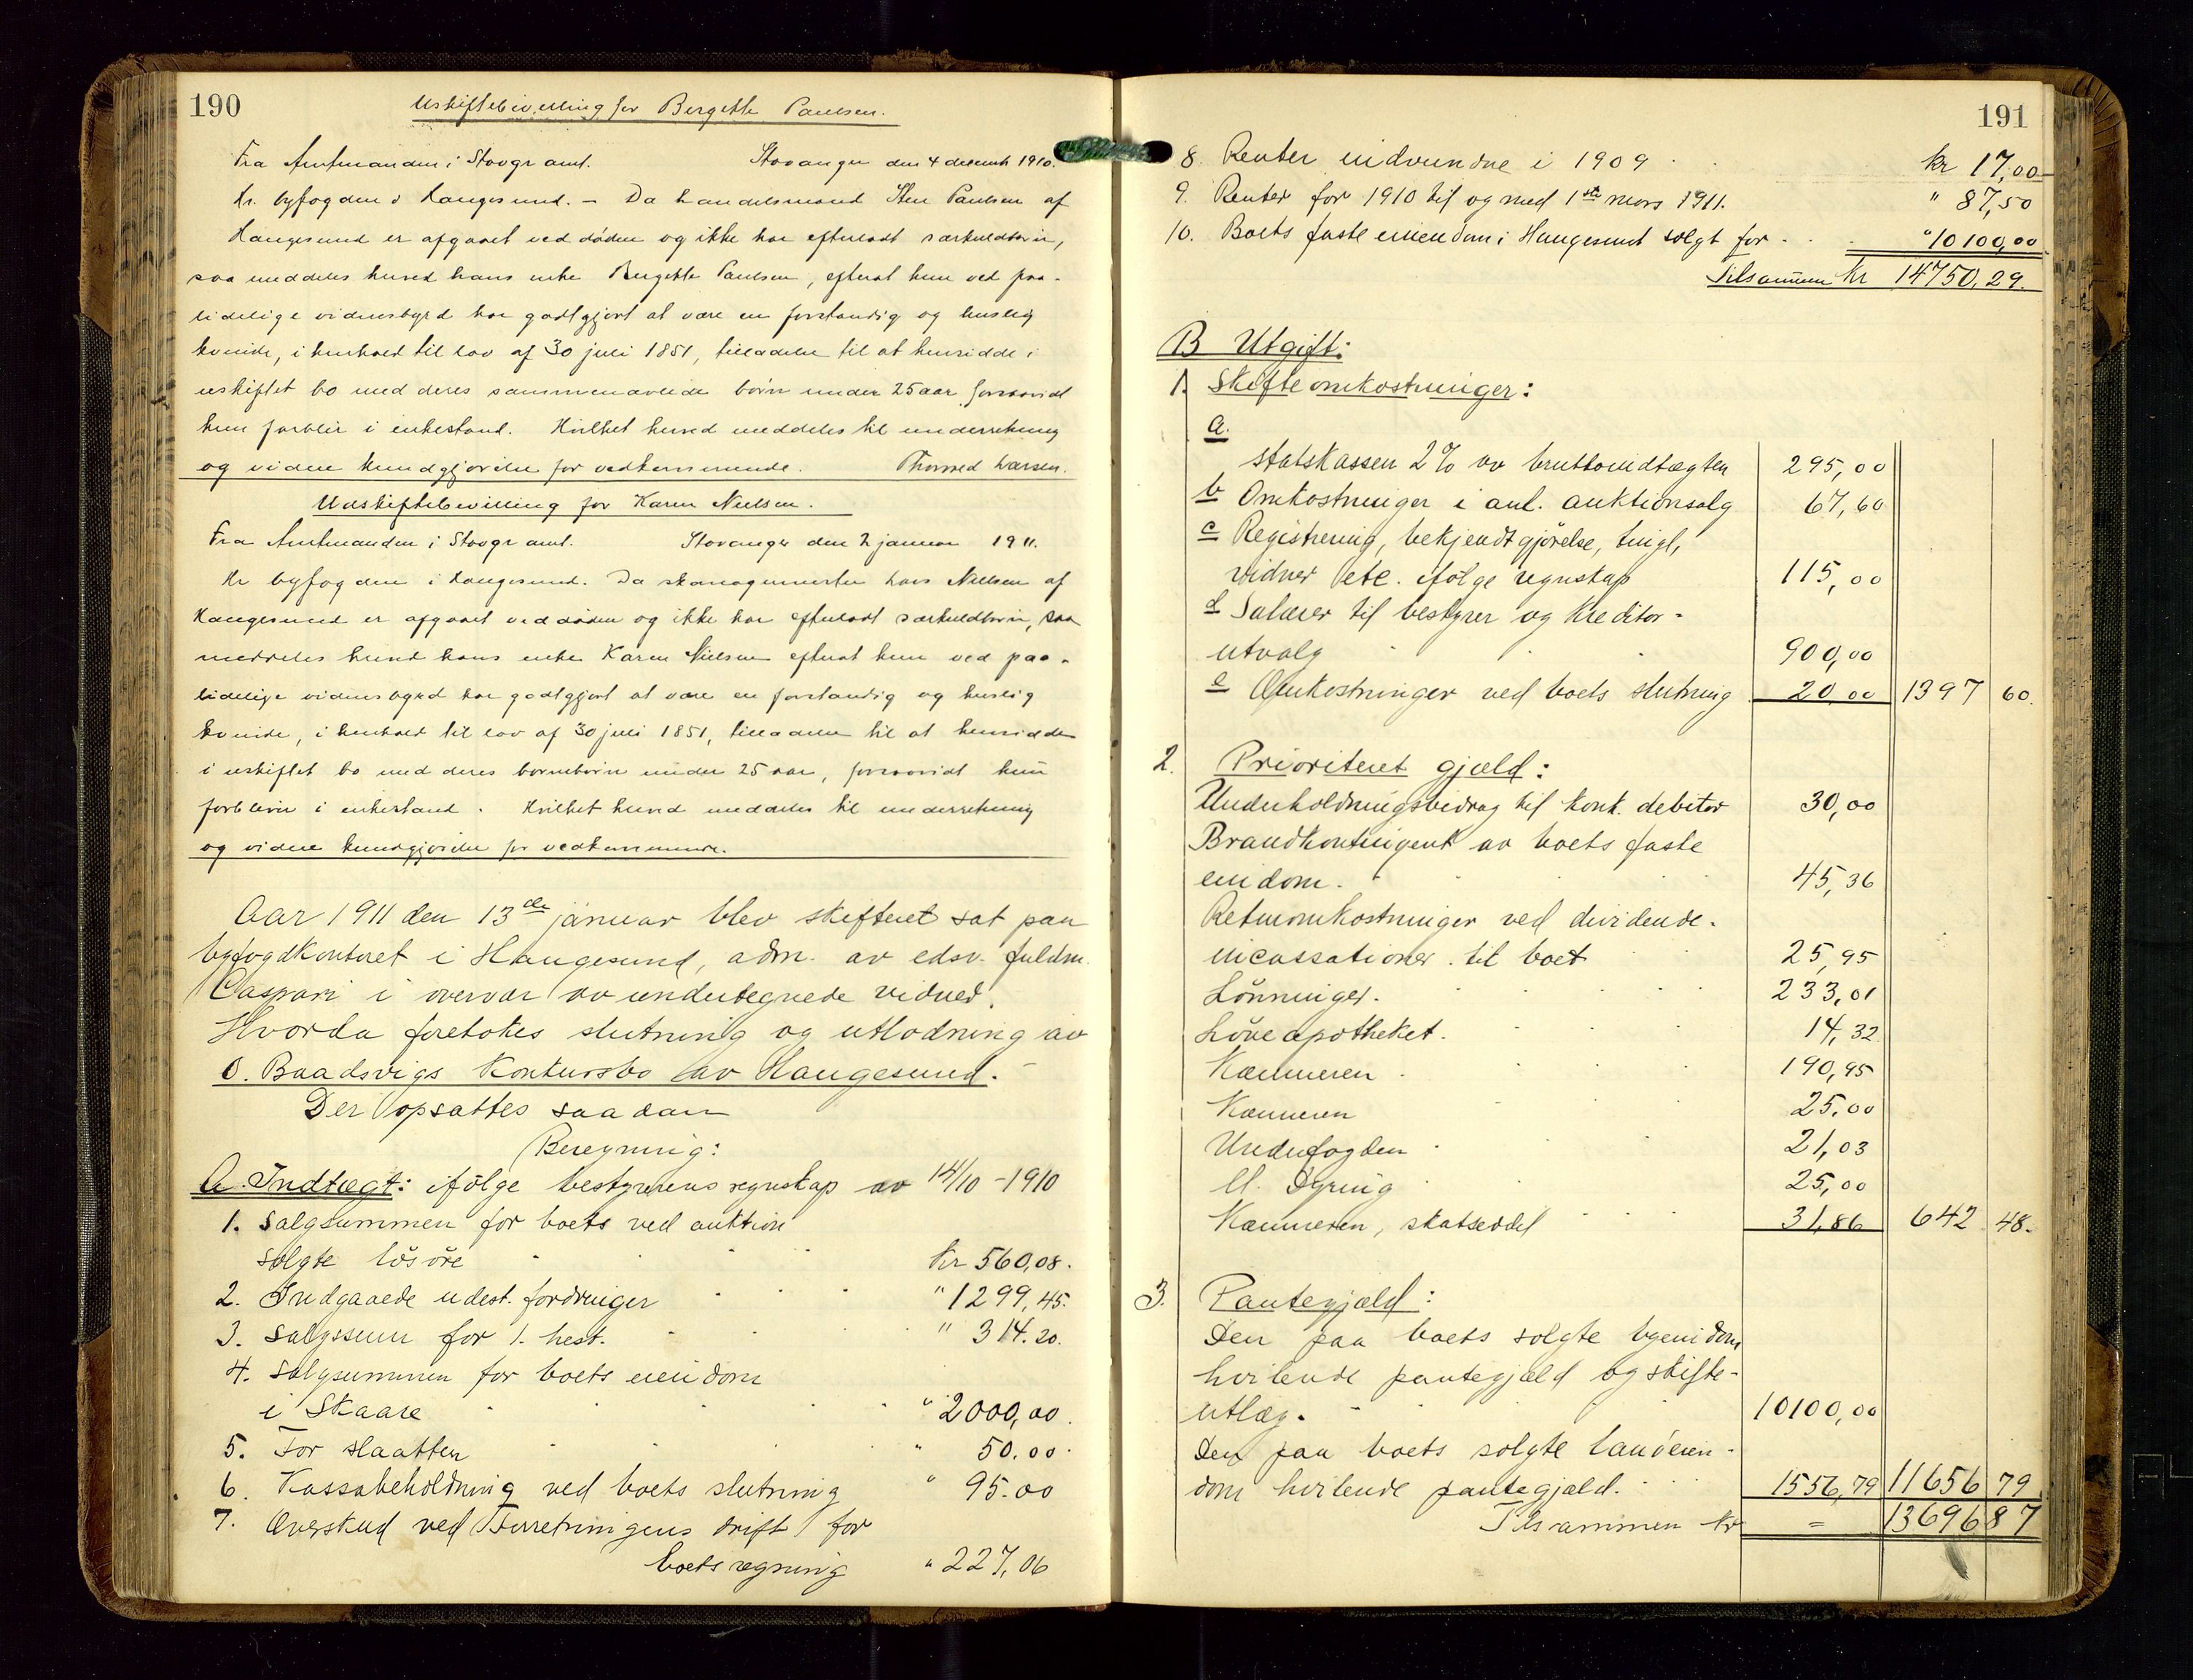 190
Uskiftebevilling for Bergette Paulsen.
Fra Amtmanden i Stavgr amt. Stavanger den 4 decemb 1910.
Hr. byfogden i Haugesund. – Da handelsmand Sten Paulsen af
Haugesund er afgaaet ved døden og ikke har efterladt særkuldbørn,
saa meddeles herved hans enke Bergette Paulsen, efterat hun ved paa-
lidelige vidnesbyrd har godtgjort at være en forstandig og huslig
kvinde, i henhold til lov af 30 juli 1851, tilladelse til at hensidde i
uskiftet bo med deres sammenavlede børn under 25 aar, forsaavidt
hun forblir i enkestand. Hvilket herved meddeles til underretning
og videre kundgjørelse for vedkommende. Thorvald Larsen.
Udskiftebevilling for Karen Nielsen.
Fra Amtmanden i Stavgr amt. Stavanger den 2 januar 1911.
Hr byfogden i Haugesund. Da skomagermester Lars Nielsen af
Haugesund er afgaaet ved døden og ikke har efterladt særkuldbørn, saa
meddeles herved hans enke Karen Nielsen efterat hun ved paa-
lidelige vidnesbyrd har godtgjort at være en forstandig og huslig
kvinde, i henhold til lov af 30 juli 1851, tilladelse til at hensidde
i uskiftet bo med deres børnebørn under 25 aar, forsaavidt hun
forbliver i enkestand. Hvilket herved meddeles til underretning
og videre kundgjørelse for vedkommende.
Aar 1911 den 13de januar blev skifteret sat paa
byfogdkontoret i Haugesund, adm. av edsv. fuldm.
Caspari i overvær av undertegnede vidner.
Hvorda foretokes slutning og utlodning av
O. Baadsvigs Konkursbo av Haugesund.
Der opsattes saadan
Beregning:
A. Indtægt: ifølge bestyrerens regnskap av 14/10 - 1910
1. Salgsummen for boets ved auktion
solgte løsøre Kr 560,08.
2. Indgaaede udest. fordringer " 1299,45.
3. Salgssum for 1. hest. " 314.20.
4. Salgsummen for boets eiendom
i Skaare " 2000,00.
5. For slaatten " 50.00.
6. Kassabeholdning ved boets slutning " 95.00
7. Overskud ved Forretningens drift for
boets regning " 227,06
191
8. Renter indvundne i 1909 kr 17,00
9. Renter for 1910 til og med 1ste mars 1911. " 87,50
10. Boets faste eiendom i Haugesund solgt for " 10100,00
Tilsammen Kr 14750,29.
B Utgift:
1. Skifteomkostninger:
a.
Statskassen 2% av bruttoindtægten 295,00
b Omkostninger i anl. auktionsalg 67,60
c Registrering, bekjendtgjørelse, tingl,
vidner etc. ifølge regnskap 115,00
d Salærer til bestyrer og Kreditor-
utvalg 900,00
e Omkostninger ved boets slutning 20,00 1397 60.
2. Prioriteret gjæld:
Underholdningsbidrag til konk. debitor 30,00
Brandkontingent av boets faste
eiendom. 45,36
Retsomkostninger ved dividende-
incassationer til boet 25,95
Lønninger. 233,01
Løveapotheket. 14,32
Kæmneren 190,95
Kæmneren 25,00
Underfogden 21,03
M. Dyring 25,00
Kæmneren, skatseddel 31,86 642 48.
3. Pantegjæld:
Den paa boets solgte byeiendom
hvilende pantegjæld og skifte-
utlæg. 10100,00
Den paa boets solgte landeien-
dom hvilende pantegjæld. 1556,79 11656 79
Tilsammen kr = 13696 87